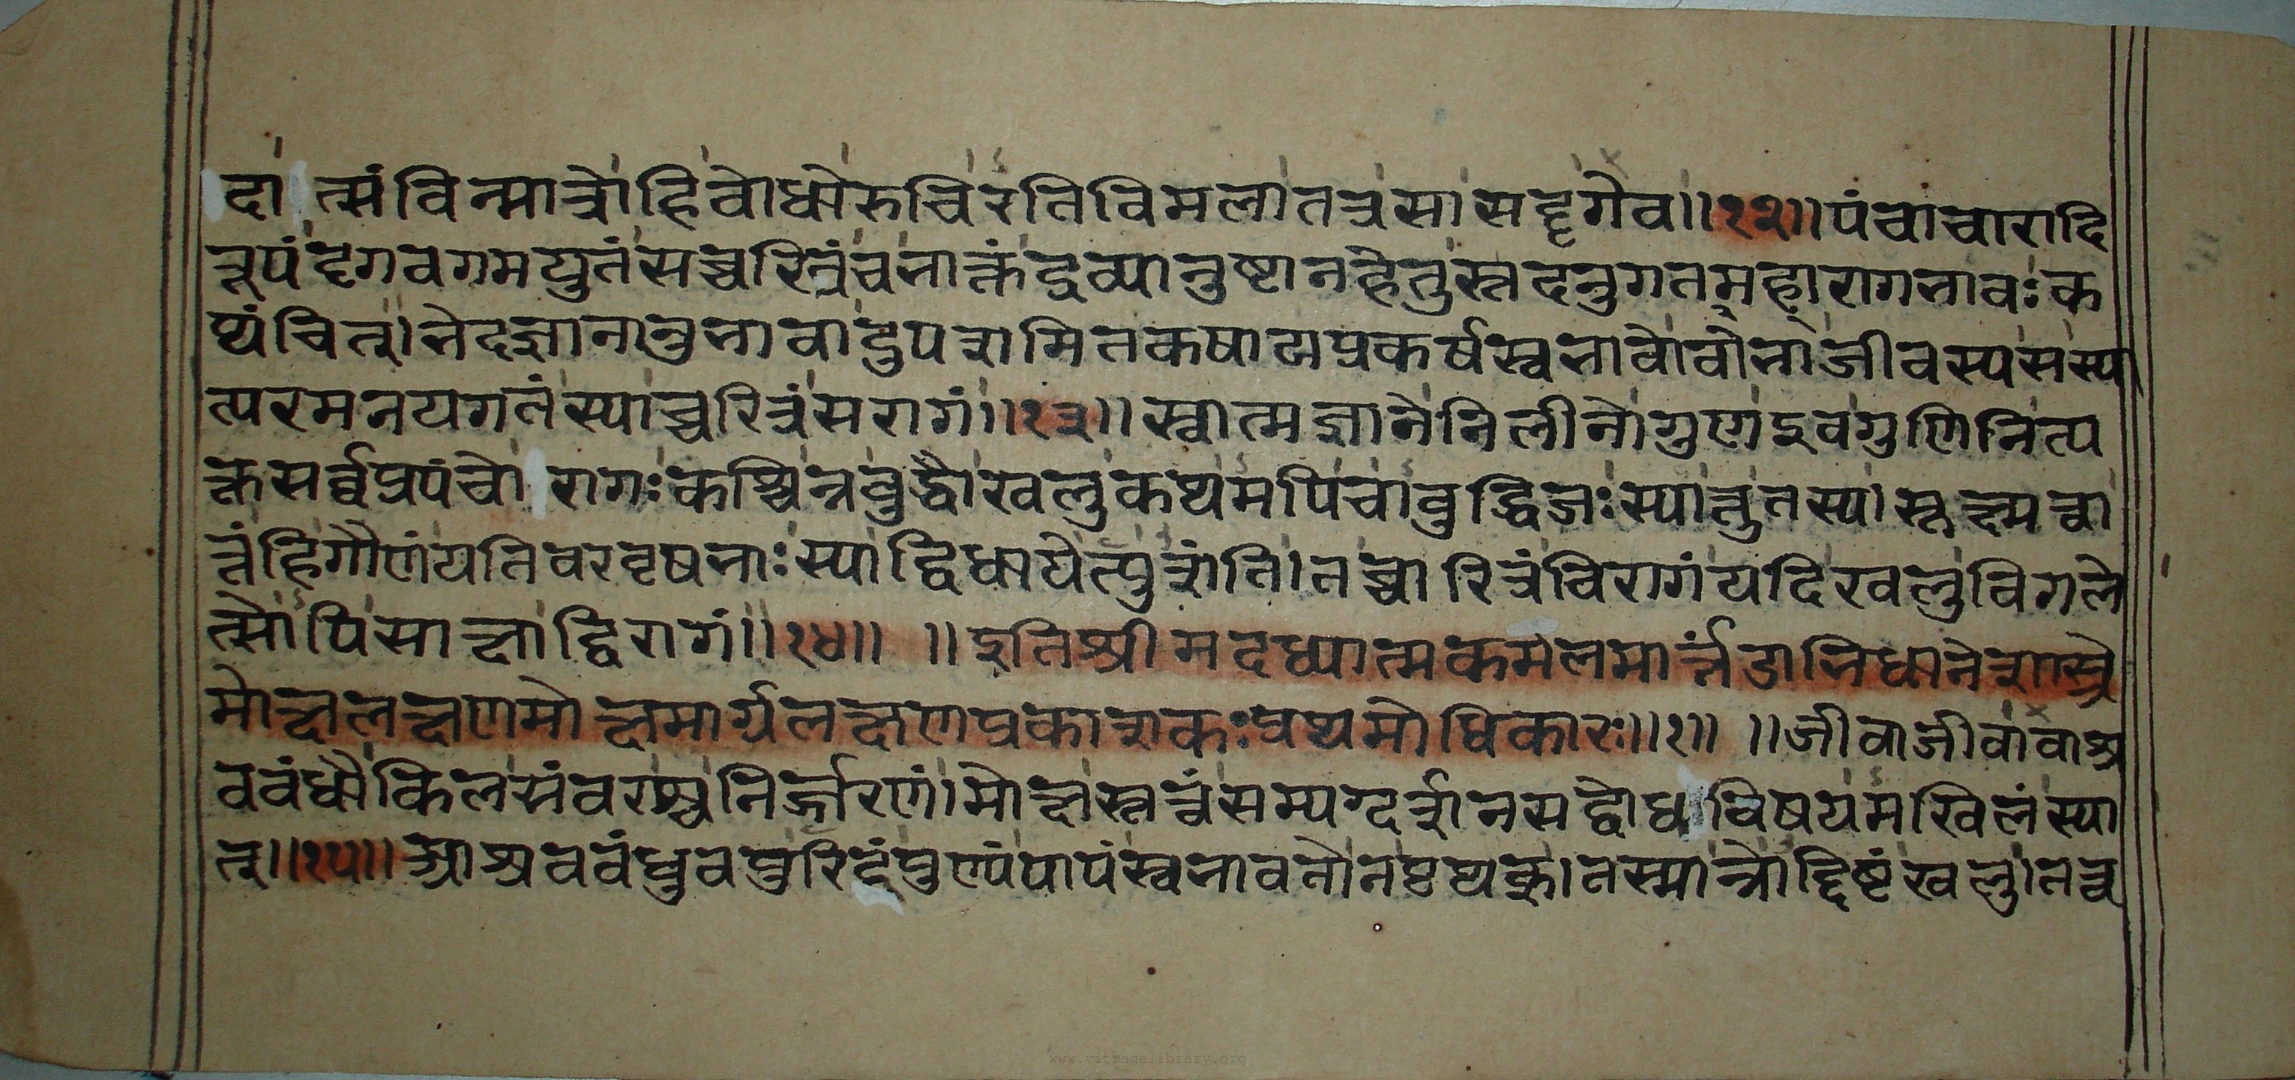 दात्मंविन्मात्रोहिवोधोरुचिरतिविमलातत्रसासद्दृगेव॥१२॥पंचाचारादि
रूपंदृगवगमयुतंसच्चरित्रंचभाक्तंद्रव्यानुष्टानहेतुस्तदनुगतमहारागभावःक
थंचित्।भेदज्ञानानुभावादुपशमितकषायप्रकर्षस्वभावोवोभाजीवस्यसस्या
त्परमनयगतंस्याच्चरित्रंसरागं॥१३॥स्वात्मज्ञानेनिलीनोगुणइवगुणिनित्य
क्तसर्व्वप्रपंचोरागःकश्चिन्नवुद्धौखलुकथमपिचावुद्धिजःस्यात्तुतस्यासूक्ष्मत्वा
त्तंहिगौणंयतिवरवृषभाःस्याद्विधायेत्युशंति।तच्चारित्रंविरागंयदिखलुविगले
त्सोपिसाक्षाद्विरागं॥१४॥ ॥इतिश्रीमदध्यात्मकमलमार्त्तंडाभिधानेशास्त्रे
मोक्षलक्षणमोक्षमार्ग्गलक्षणप्रकाशकःप्रथमोधिकारः॥१॥ ॥जीवाजीवावाश्र
ववंधौकिलसंवरश्चनिर्ज्जरणं।मोक्षस्तत्त्वंसम्यग्दर्शनसद्वोधविषयमखिलंस्या
त्॥१५॥आश्रववंधुवपुरिदंपुण्यंपापंस्वभावतोनष्टथक्।तस्मान्नोद्दिष्टंखलु।तत्व
www.vitragelibrary.org